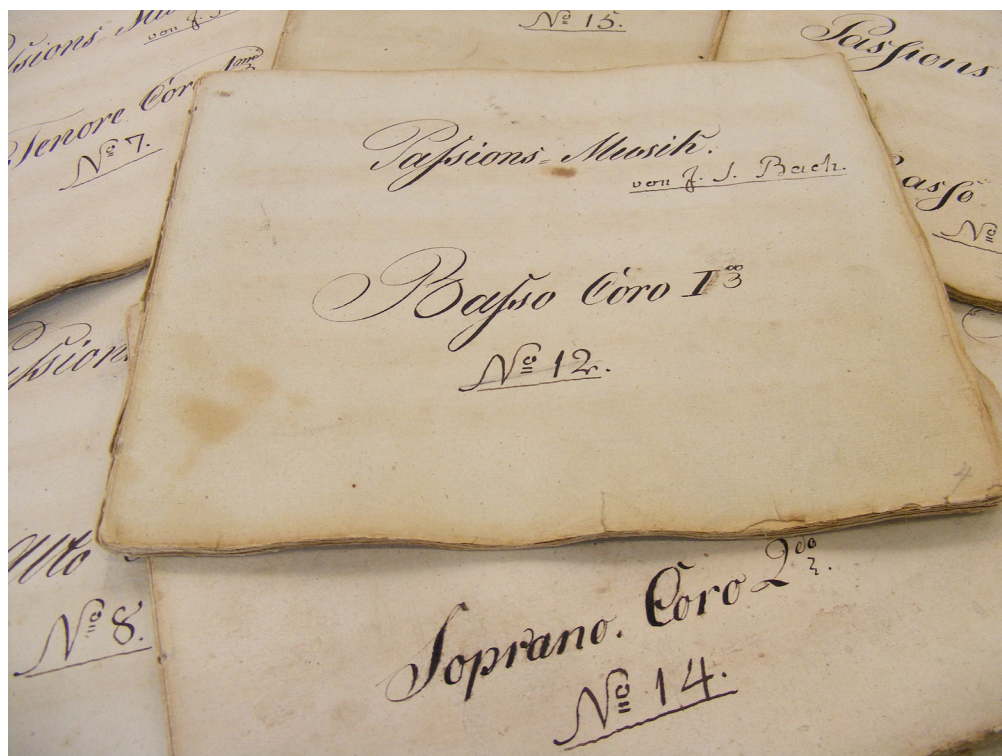 Nº 15.
von J. S.
Tenore Coro 1mo
Nº 7.
Passions
Basso
Nº
Paſsions-Musik.
von J. S. Bach.
Baſso Coro I
Nº 12.
4
Alto
Nº 8.
Soprano. Coro 2do
Nº 14.